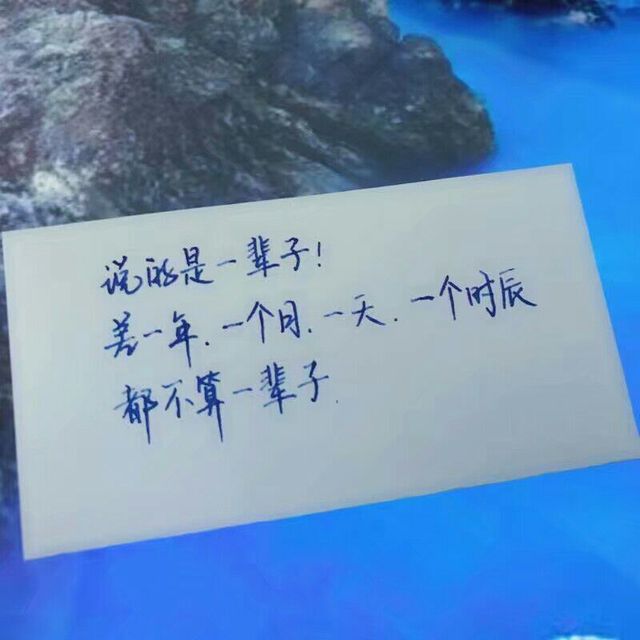 说的是一辈子!
差一年.一个月.一天.一个时辰
都不算一辈子.